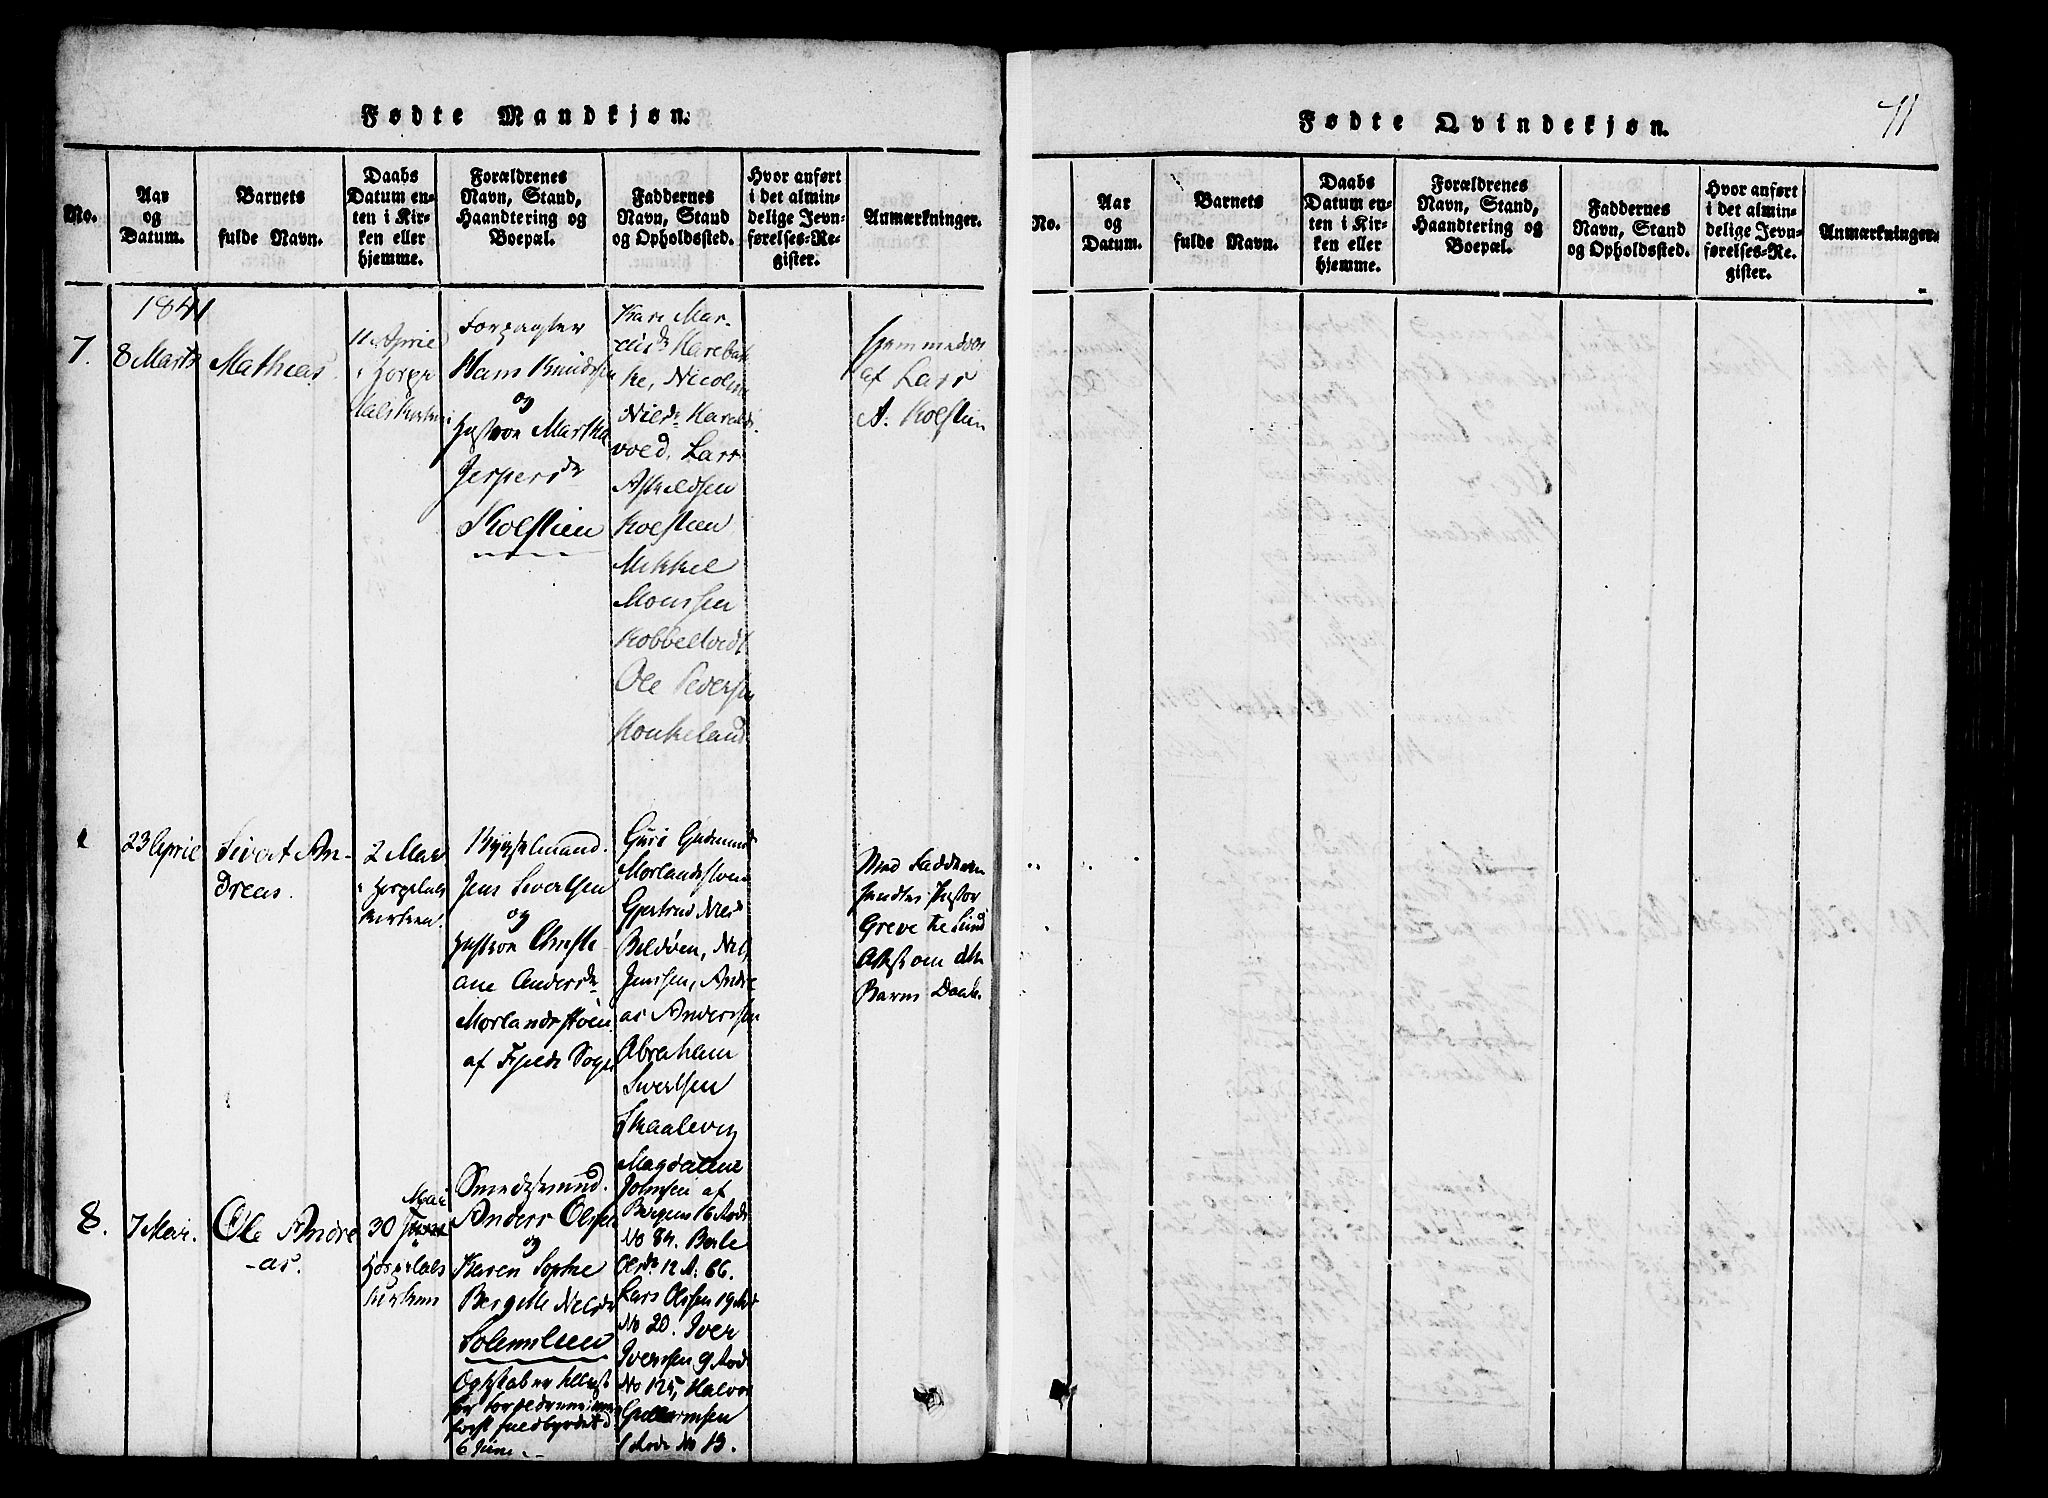 Fødte Mandkjøn.
No.
Aar
og
Datum.
Barnets
fulde Navn.
Daabs
Datum en-
ten i Kir-
ken eller
hjemme.
Forældrenes
Navn, Stand,
Haandtering og
Boepæl.
Faddernes
Navn, Stand
og Opholdssted.
Hvor anført
i det almin-
delige Jevn-
førelses-Re-
gister.
Anmærkninger.
1841
7.
8 Marts
Mathias
11 April
Forpagter
Hans Knudsen
og
Hustroe Martha
Jespersdr
Kolstien
Kari Mar-
Nicoline
Nielsdr
Lars
Askildsen
Kolstien
Mikkel
Monssen
Kobbeltvedt
Ole Pedersen
Houkeland
Hjemmedøbt
af Lars
A. Kolstien
23 April
Sivert An-
dreas.
2 Mai
i Hosgelaes
Kirken.
Bygselmand.
Jens Sivertsen
og
Hustroe Christi-
ane Andersdr
Morlandsstøen
af Fjelds Sogn
Guro Gudmundsdr
Morlandsstøen
Gjertrud Nielsdr
Beldøen, Nils
Jenssen, Andre
as Anderssen
Abraham
Sivertsen
Skaalevig
Med Fadderen
sendtes Pastor
Greve til Sund
Attest om dette
Barns Daab.
8.
7 Mai.
Ole Andre
-as.
Mai
30 Juni
Kirken
Smedsvend.
Anders Olsen
og
Karen Sophie
Bergitte Nielsdr
6 Juni.
Magdalene
Johnsen af
Bergens 16 Rode
No 84. Berte
Olsdr 12 R. 66.
Lars Olssen 19 Rode
No 20. Iver
Iverssen 9 Rode
No 125, Halvor
Guttormsen
1 Rode No 13.
Fødte Qvindekjøn.
71
No.
Aar
og
Datum.
Barnets
fulde Navn.
Daabs
Datum en-
ten i Kir-
ken eller
hjemme.
Forældrenes
Navn, Stand,
Haandtering og
Boepæl.
Faddernes
Navn, Stand
og Opholdssted.
Hvor anført
i det almin-
delige Jevn-
førelses-Re-
gister.
Anmærkninger.